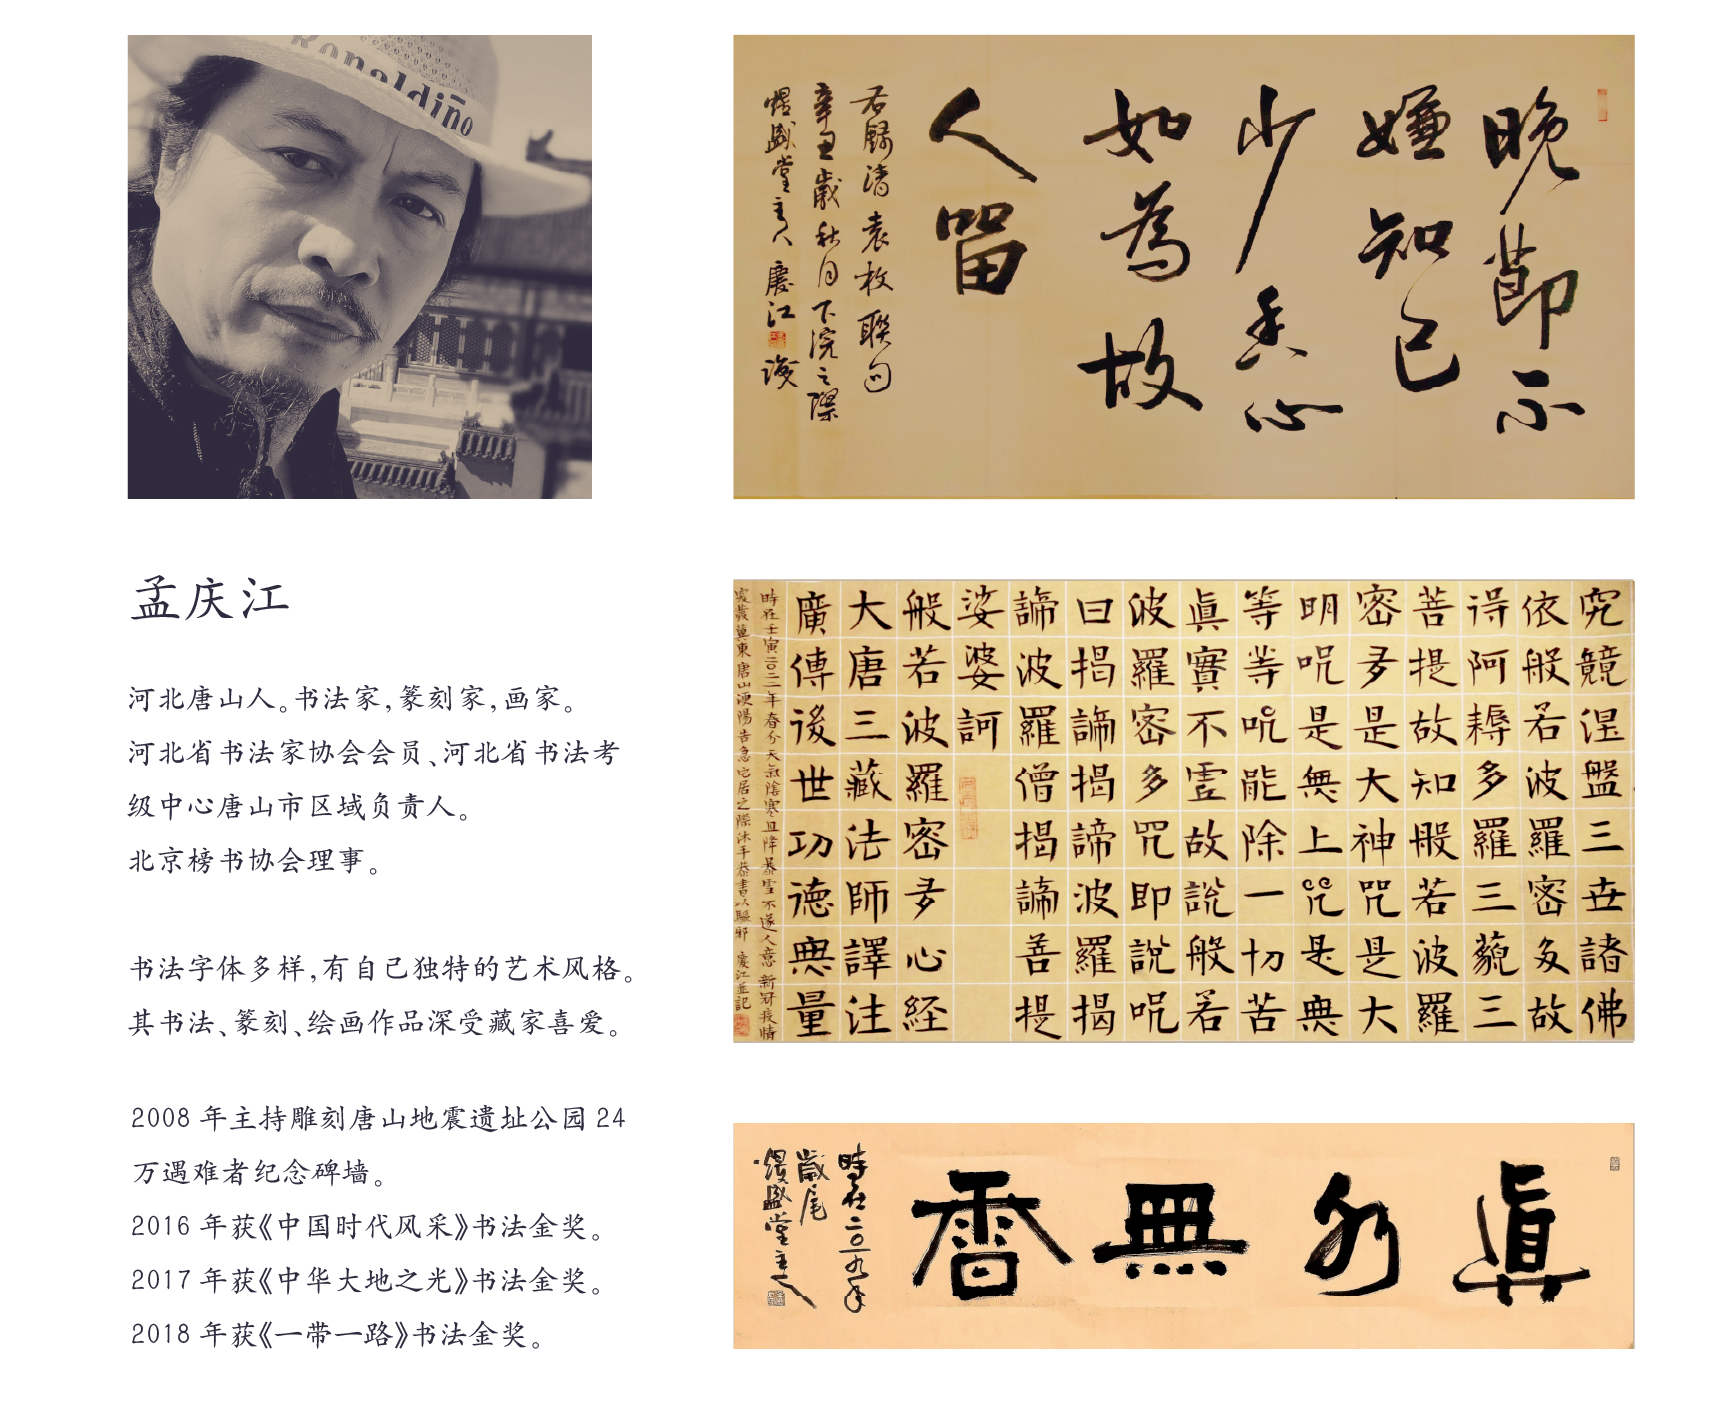 Ronaldiño
孟庆江
河北唐山人。书法家，篆刻家，画家。
河北省书法家协会会员、河北省书法考
级中心唐山市区域负责人。
北京榜书协会理事。
书法字体多样，有自己独特的艺术风格。
其书法、篆刻、绘画作品深受藏家喜爱。
2008 年主持雕刻唐山地震遗址公园 24
万遇难者纪念碑墙。
2016 年获《中国时代风采》书法金奖。
2017 年获《中华大地之光》书法金奖。
2018 年获《一带一路》书法金奖。
晚節不
嫌知己
少香心
如為故
人留
右録清袁枚聯句
辛丑歲秋月下浣之際
盛堂主人慶江
究競涅盤三世諸佛
依般若波羅密多故
得阿耨多羅三藐三
菩提故知般若波羅
密多是大神咒是大
明咒是無上咒是無
等等咒能除一切苦
眞實不虛故說般若
波羅密多咒即說咒
曰揭諦揭諦波羅揭
諦波羅僧揭諦菩提
娑婆訶
般若波羅密多心経
大唐三藏法師譯注
廣傳後世功德無量
時在壬寅二〇二二年春分天氣陰寒且降暴雪不遂人意新冠疫情
突發冀東唐山浭陽告急宅居之際沐手恭書以驅邪慶江並記
眞水無香
時在二〇一九年
歲尾
盛堂主人